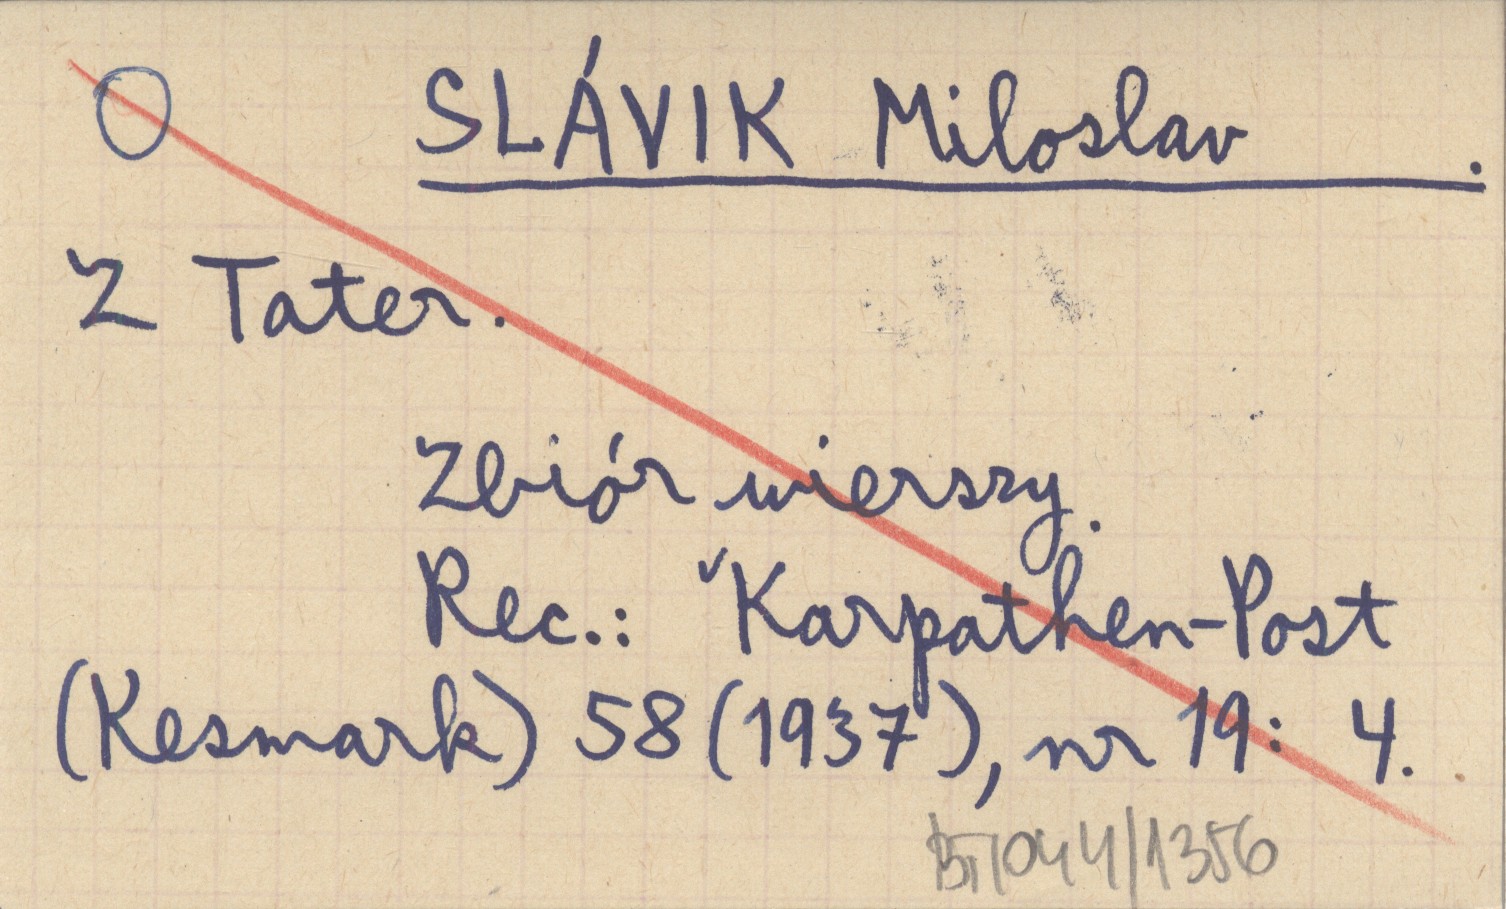 SLÁVIK Miloslav .
Z Tater.
Zbiór wierszy.
Rec.: Karpathen-Post
(Kesmark) 58 (1937), nr 19: 4.
BT/044/1356